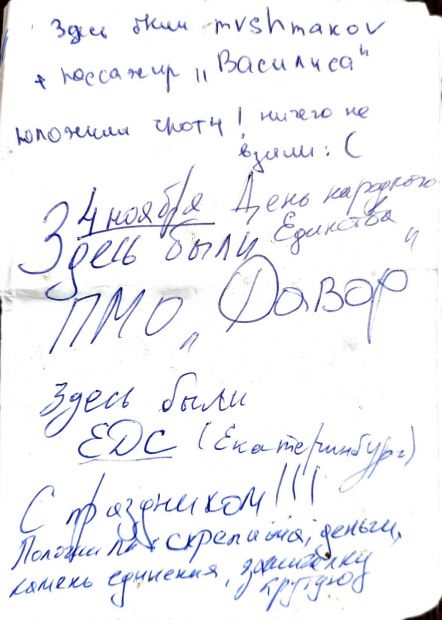 Здесь были mrshmakov
+ пассажир „Василиса"
положили ! ничего не
взяли :(
4 ноября День народного
Единства
Здесь были
ПМО „Фавор"
Здесь были
ЕДС (Екатеринбург)
С праздником!!!
Положили: скрепыша, деньги,
камень единения, зашибалку
крутую